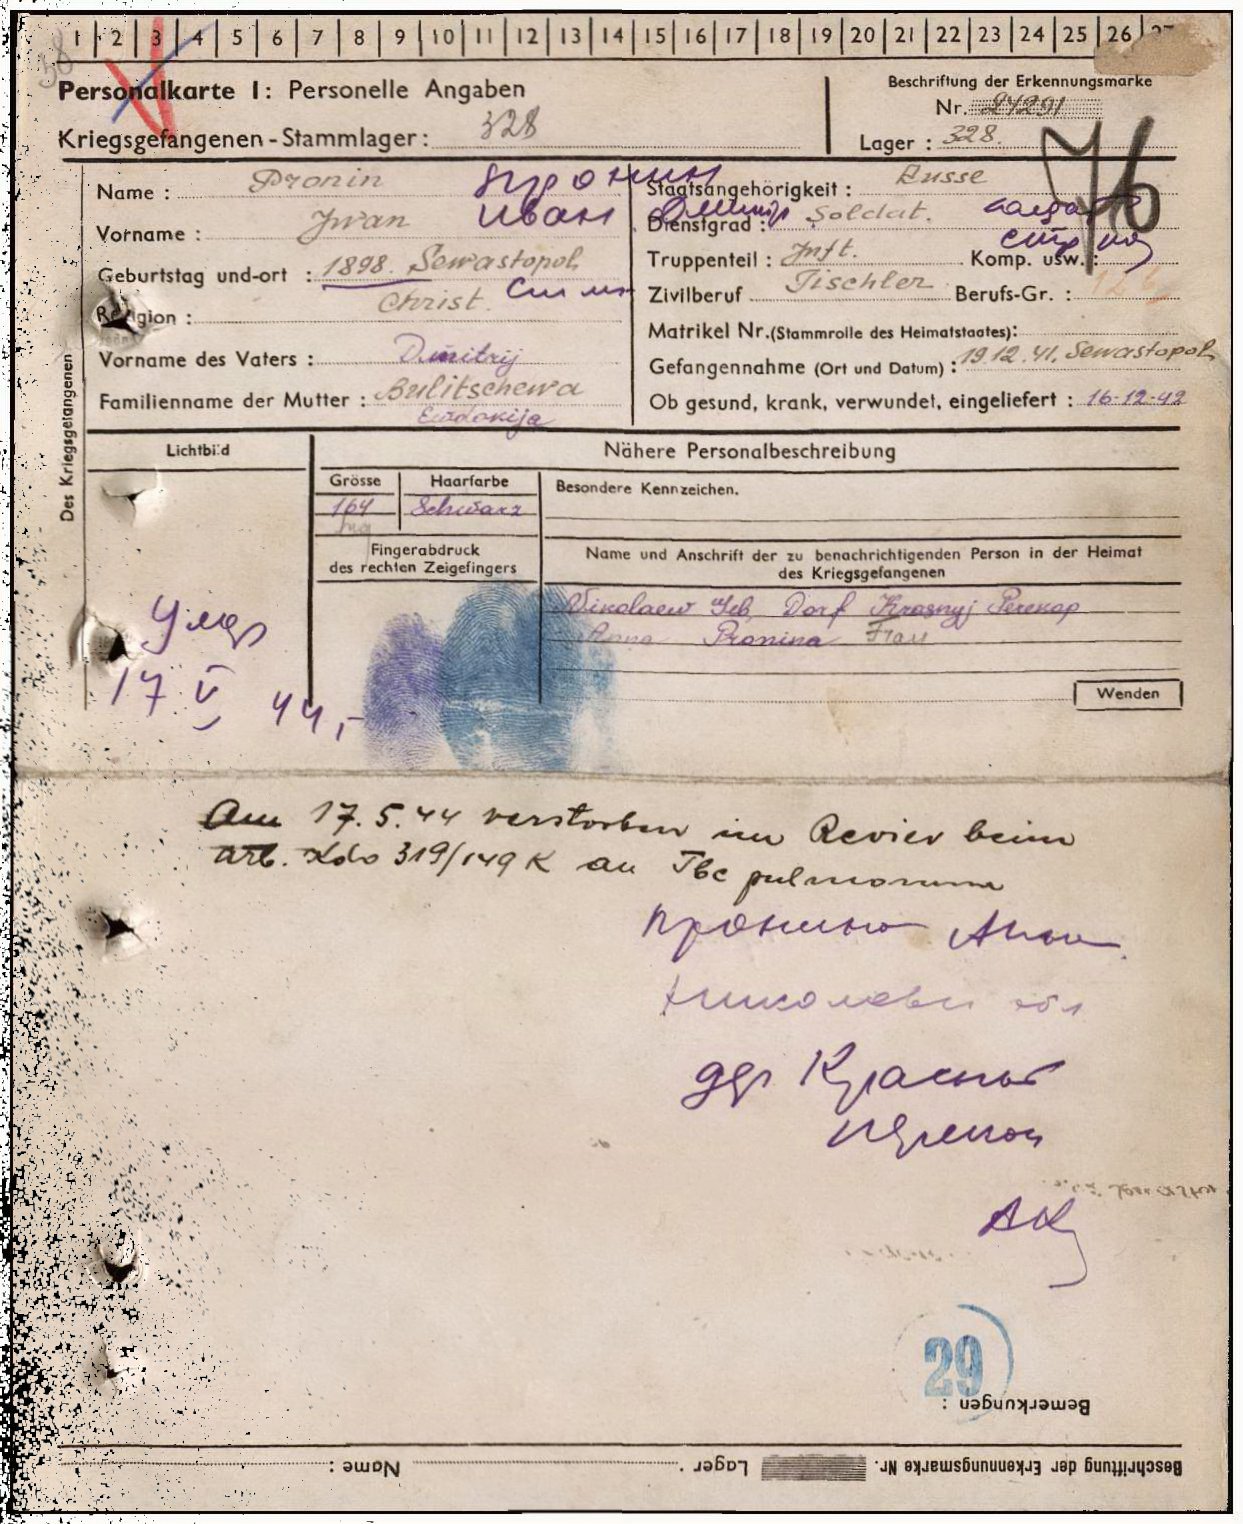 1 2 3 4 5 6 7 8 9 10 11 12 13 14 15 16 17 18 19 20 21 22 23 24 25 26 27
Personalkarte I: Personelle Angaben
Beschriftung der Erkennungsmarke
Nr. 27291
Kriegsgefangenen-Stammlager: 328
Lager: 328.
Des Kriegsgefangenen
Name: Pronin Пронин
Vorname: Jwan Иван
Geburtstag und-ort: 1898. Sewastopol
Religion: Christ.
Vorname des Vaters: Dmitrij
Familienname der Mutter: Bulitschewa
Ewdokija
Staatsangehörigkeit: Russe
Dienstgrad: Soldat.
Truppenteil: Jnft. Komp. usw.:
Zivilberuf Tischler Berufs-Gr.:
Matrikel Nr. (Stammrolle des Heimatstaates):
Gefangennahme (Ort und Datum): 19.12.41. Sewastopol
Ob gesund, krank, verwundet, eingeliefert: 16-12-42
Lichtbild
Nähere Personalbeschreibung
Grösse
164
Haarfarbe
Schwarz
Besondere Kennzeichen.
Fingerabdruck
des rechten Zeigefingers
Name und Anschrift der zu benachrichtigenden Person in der Heimat
des Kriegsgefangenen
Nikolaew Geb, Dorf Krasnyj Perekop
Anna Pronina Frau
Wenden
Умер
17 V 44
Am 17.5.44 verstorben im Revier beim
Arb. Kdo 319/149 K an Tbc pulmonum
Анна
дер Красный
29
Bemerkungen:
Beschriftung der Erkennungsmarke Nr. Lager. Name: